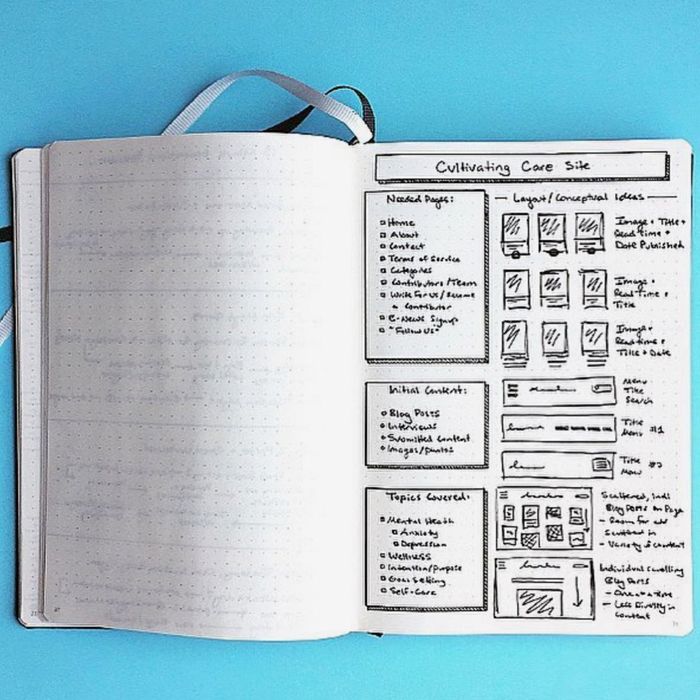 Cultivating Care Site
Needed Pages:
Home
About
Contact
Terms of Service
Categories
Contributors/Team
Write For Us/Become
a Contributor
E-News Signup
"Follow Us"
Initial Content:
Blog Posts
Interviews
Submitted Content
Images/photos
Topics Covered:
Mental Heath
Anxiety
Depression
Wellness
Intention/Purpose
Goal Setting
Self-Care
Layout/Conceptual Ideas
Image + Title +
Read time +
Date Published
Image +
Read time +
Title
Image +
Read time +
Title + Date
Menu
Title
Search
Title
Menu #1
Title
Menu #2
Scattered, Indi.
Blog Posts on Page
- Room for
scattered in
- Variety of content
Individual scrolling
Blog Posts
- One at a time
- Less Diversity in
content